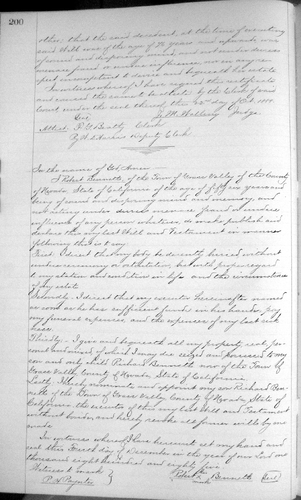 200
other, that the said decedent, at the time of executing
said Will was of the age of 21 years and upwards, was
of sound and disposing mind, and not under duress
menace, fraud, or undue influence, nor in any re-
spect incompetent to devise and bequeath his estate
In witness whereof, I have signed this certificate
and caused the same to be attested by the Clerk of said
Court under the seal thereof this day of 188
Judge.
Attest: Clerk
By Deputy Clerk
In the name of God Amen
I Robert Bennetts, of the Town of Grass Valley of the County
of Nevada State of California of the age of fifty six years and
being of sound and disposing mind and memory, and
not acting under duress menace, fraud or undue
influence of any person whatever, do make publish and
declare this my last Will and Testament in manner
following that is to say
First. I direct that my body be decently buried without
undue ceremony or ostentation, but with proper regard
to my station and condition in life and the circumstances
of my estate
Secondly. I direct that my executor hereinafter named
as soon as he has sufficient funds in his hands, pay
my funeral expenses and the expenses of my last sick
ness.
Thirdly. I give and bequeath all my property, real per-
sonal and mixed of which I may die seized and possessed to my
son and only child Richard Bennetts now of the Town of
Grass Valley County of Nevada State of California
Lastly I hereby nominate and appoint my son Richard Ben-
netts of the Town of Grass Valley County of Nevada State of
California the executor of this my last Will and Testament
without bonds and hereby revoke all former wills by me
made
In witness whereof I have hereunto set my hand and
seal this day of December in the year of our Lord one
thousand eight hundred and eighty five
Witness to mark
Robert Bennetts (Seal)
mark